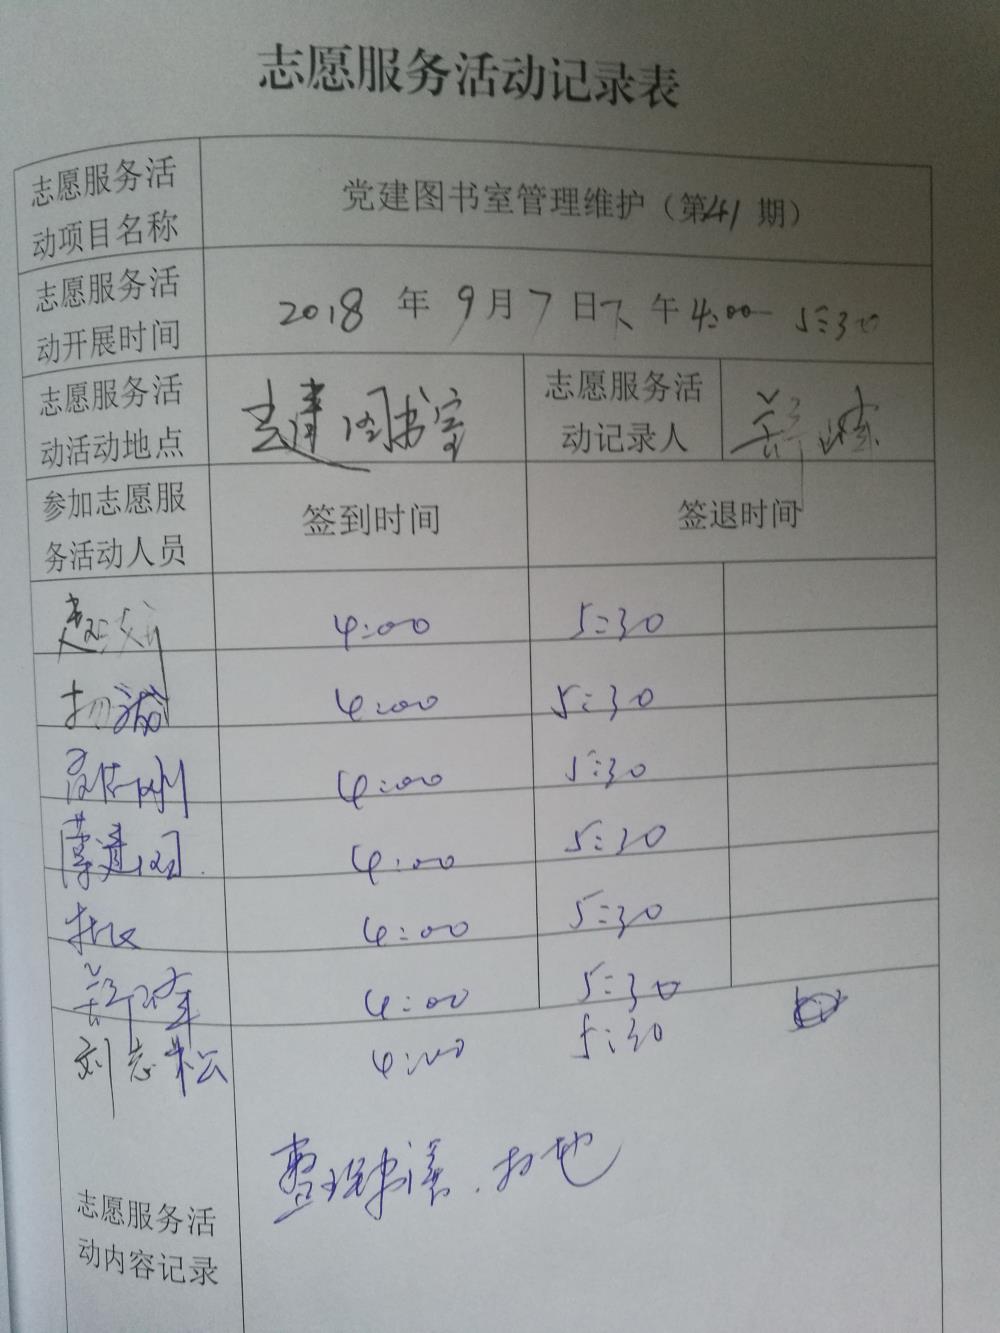 志愿服务活动记录表
志愿服务活
动项目名称
党建图书室管理维护（第41期）
志愿服务活
动开展时间
2018年9月7日下午4:00-5:30
志愿服务活
动活动地点
党建图书室
志愿服务活
动记录人
参加志愿服
务活动人员
签到时间
签退时间
4:00 5:30
4:00 5:30
4:00 5:30
4:00 5:30
4:00 5:30
4:00 5:30
刘志松 4:00 5:30
志愿服务活
动内容记录
整理书籍、扫地